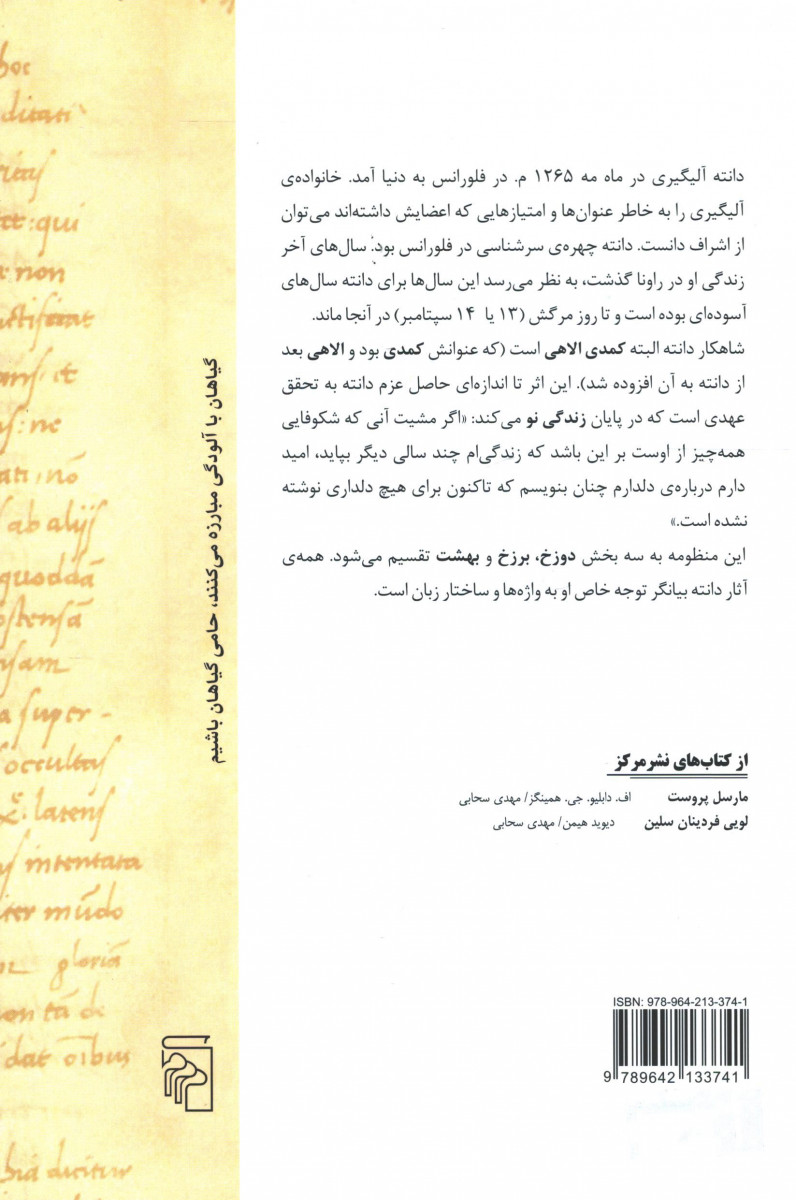 دانته آلیگیری در ماه مه ۱۲۶۵ م. در فلورانس به دنیا آمد. خانواده‌ی
آلیگیری را به خاطر عنوان‌ها و امتیازهایی که اعضایش داشته‌اند می‌توان
از اشراف دانست. دانته چهره‌ی سرشناسی در فلورانس بود. سال‌های آخر
زندگی او در راونا گذشت، به نظر می‌رسد این سال‌ها برای دانته سال‌های
آسوده‌ای بوده است و تا روز مرگش (۱۳ یا ۱۴ سپتامبر) در آنجا ماند.
شاهکار دانته البته کمدی الاهی است (که عنوانش کمدی بود و الاهی بعد
از دانته به آن افزوده شد). این اثر تا اندازه‌ای حاصل عزم دانته به تحقق
عهدی است که در پایان زندگی نو می‌کند: «اگر مشیت آنی که شکوفایی
همه‌چیز از اوست بر این باشد که زندگی‌ام چند سالی دیگر بپاید، امید
دارم درباره‌ی دلدارم چنان بنویسم که تاکنون برای هیچ دلداری نوشته
نشده است.»
این منظومه به سه بخش دوزخ، برزخ و بهشت تقسیم می‌شود. همه‌ی
آثار دانته بیانگر توجه خاص او به واژه‌ها و ساختار زبان است.
از کتاب‌های نشرمرکز
مارسل پروست اف. دابلیو. جی. همینگز/ مهدی سحابی
لویی فردینان سلین دیوید هیمن/ مهدی سحابی
ISBN: 978-964-213-374-1
9 789642 133741
گیاهان با آلودگی مبارزه می‌کنند، حامی گیاهان باشیم
hoc
ditati
qui
non
et
ne
ab alijs
quoddā
ostensā
a super-
occultas
latens
intentata
iter mūdo
gloriā
on tā de
dat oībus
dicitur